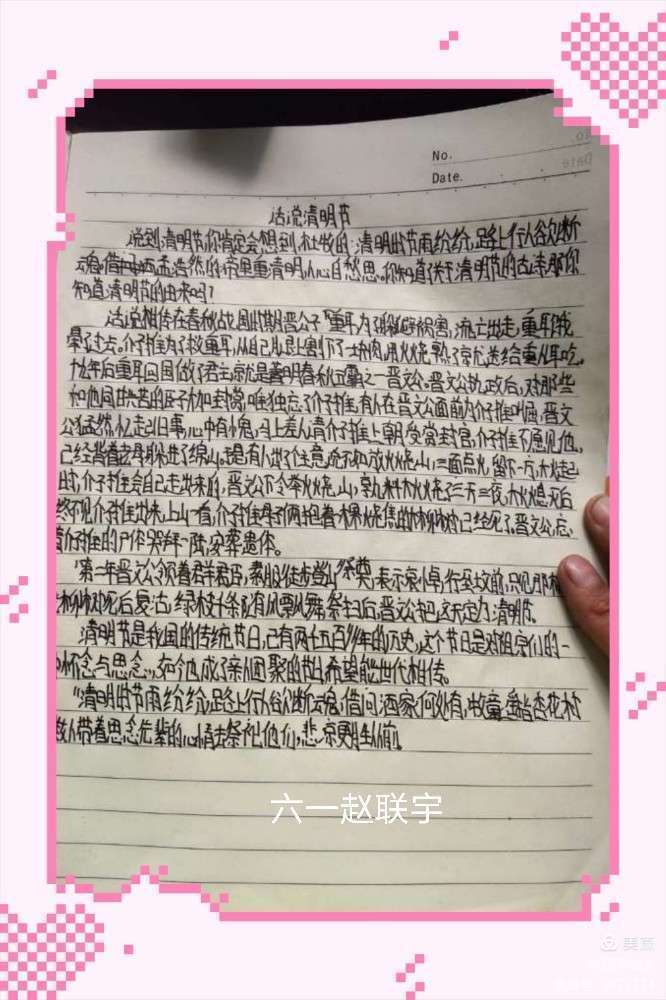 No.
Date.
话说清明节
说到清明节,你肯定会想到杜牧的"清明时节雨纷纷,路上行人欲断
魂,借 孟浩然的"帝里重清明,人心自愁思。你知道了关于清明节的古诗,那你
知道清明节的由来吗?
话说相传在春秋战国时期晋公子"重耳"为了躲避祸害,流亡出走,重耳饿
晕了过去。介子推为了救重耳,从自己腿上割下了一块肉,用火烧熟了就送给重耳吃。
十九年后重耳回国做了君主,就是著名春秋五霸之一晋文公。晋文公执政后,对那些
和他同甘共苦的臣子大加封赏,唯独忘了介子推,有人在晋文公面前为介子推叫屈,晋文
公猛然忆起旧事,心中有愧,马上差人请介子推上朝受赏封官,介子推不愿见他,
已经背着老母躲进了绵山。 有人出了个主意说不如放火烧山,三面点火,留下一方,大火起
时,介子推会自己走出来的,晋文公下令举火烧山,孰料大火烧了三天三夜,大火熄灭后
终不见介子推出来,上山一看,介子推母子俩抱着一棵烧焦的大柳树已经死了。晋文公
着介子推的尸体哭拜一阵,安葬遗体。
第二年晋文公领着群臣,素服徒步登山祭奠,表示哀悼,行至坟前,只见那棵
老柳树死后复活,绿枝千条,随风飘舞,祭扫后,晋文公把这天定为清明节。
清明节是我国的传统节日,已有两千五百多年的历史,这个节日是对祖宗们的一
种怀念与思念, 今也成了亲人团聚的节日,希望能世代相传。
"清明时节雨纷纷,路上行人欲断魂,借问酒家何处有,牧童遥指杏花村
人带着思念先辈的心情去祭祀他们,悲凉更生从前。
六一赵联宇
美篇